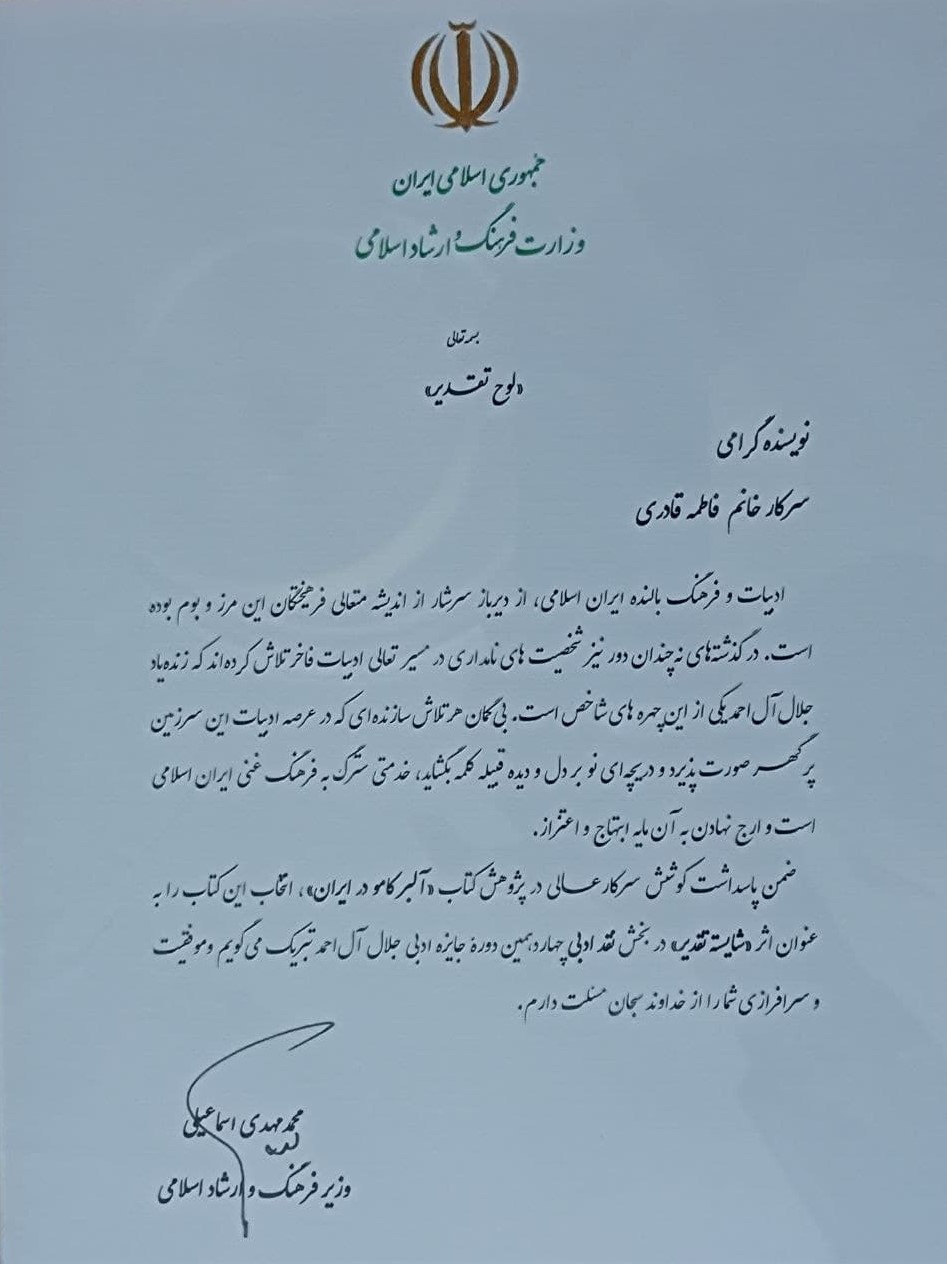 جمهوری اسلامی ایران
وزارت فرهنگ و ارشاد اسلامی
بسمه تعالی
«لوح تقدیر»
نویسنده گرامی
سرکار خانم فاطمه قادری
ادبیات و فرهنگ بالنده ایران اسلامی، از دیرباز سرشار از اندیشه متعالی فرهیختگان این مرز و بوم بوده
است. در گذشته‌های نه چندان دور نیز شخصیت های نامداری در مسیر تعالی ادبیات فاخر تلاش کرده‌اند که زنده‌یاد
جلال آل احمد یکی از این چهره های شاخص است. بی گمان هر تلاش سازنده‌ای که در عرصه ادبیات این سرزمین
پر گهر صورت پذیرد و دریچه‌ای نو بر دل و دیده قبیله کلمه بگشاید، خدمتی سترگ به فرهنگ غنی ایران اسلامی
است و ارج نهادن به آن مایه ابتهاج و اعتزاز.
ضمن پاسداشت کوشش سرکارعالی در پژوهش کتاب «آلبر کامو در ایران»، انتخاب این کتاب را به
عنوان اثر «شایسته تقدیر» در بخش نقد ادبی چهاردهمین دورهٔ جایزه ادبی جلال آل احمد تبریک می گویم و موفقیت
و سرافرازی شما را از خداوند سبحان مسئلت دارم.
محمد مهدی اسماعیلی
وزیر فرهنگ و ارشاد اسلامی